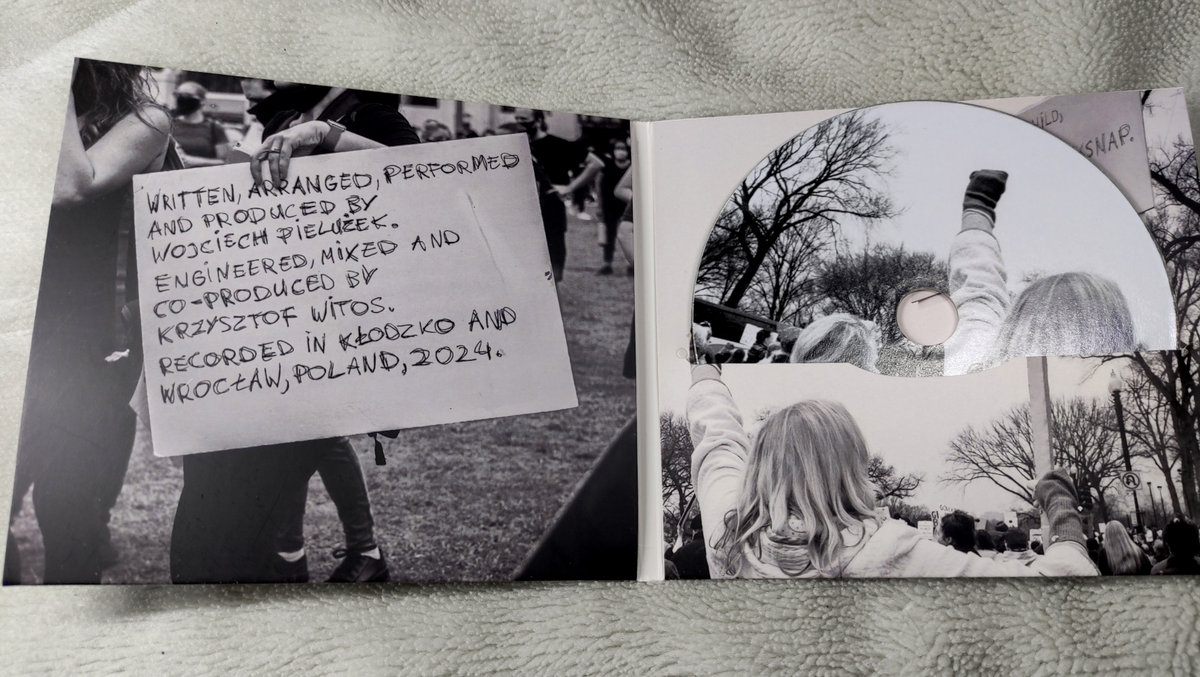 WRITTEN, ARRANGED, PERFORMED
AND PRODUCED BY
WOJCIECH PIELUŻEK.
ENGINEERED, MIXED AND
CO-PRODUCED BY
KRZYSZTOF WITOS.
RECORDED IN KŁODZKO AND
WROCŁAW, POLAND, 2024.
SNAP.